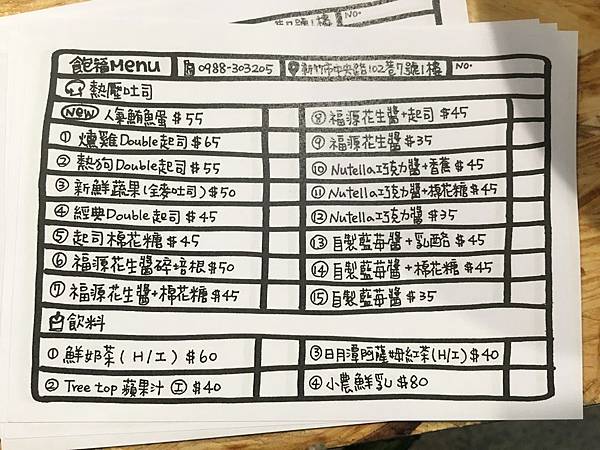 飽福Menu 0988-303205 新竹市中央路102巷7號1樓 NO.
熱壓吐司
NEW 人氣鮪魚蛋 $55
① 燻雞Double起司 $65
② 熱狗Double起司 $55
③ 新鮮蔬果(全麥吐司) $50
④ 經典Double起司 $45
⑤ 起司棉花糖 $45
⑥ 福源花生醬碎培根 $50
⑦ 福源花生醬+棉花糖 $45
⑧ 福源花生醬+起司 $45
⑨ 福源花生醬 $35
⑩ Nutella巧克力醬+香蕉 $45
⑪ Nutella巧克力醬+棉花糖 $45
⑫ Nutella巧克力醬 $35
⑬ 自製藍莓醬+乳酪 $45
⑭ 自製藍莓醬+棉花糖 $45
⑮ 自製藍莓醬 $35
飲料
① 鮮奶茶(H/I) $60
② Tree top 蘋果汁 Ⓘ $40
③ 日月潭阿薩姆紅茶(H/I) $40
④ 小農鮮乳 $80